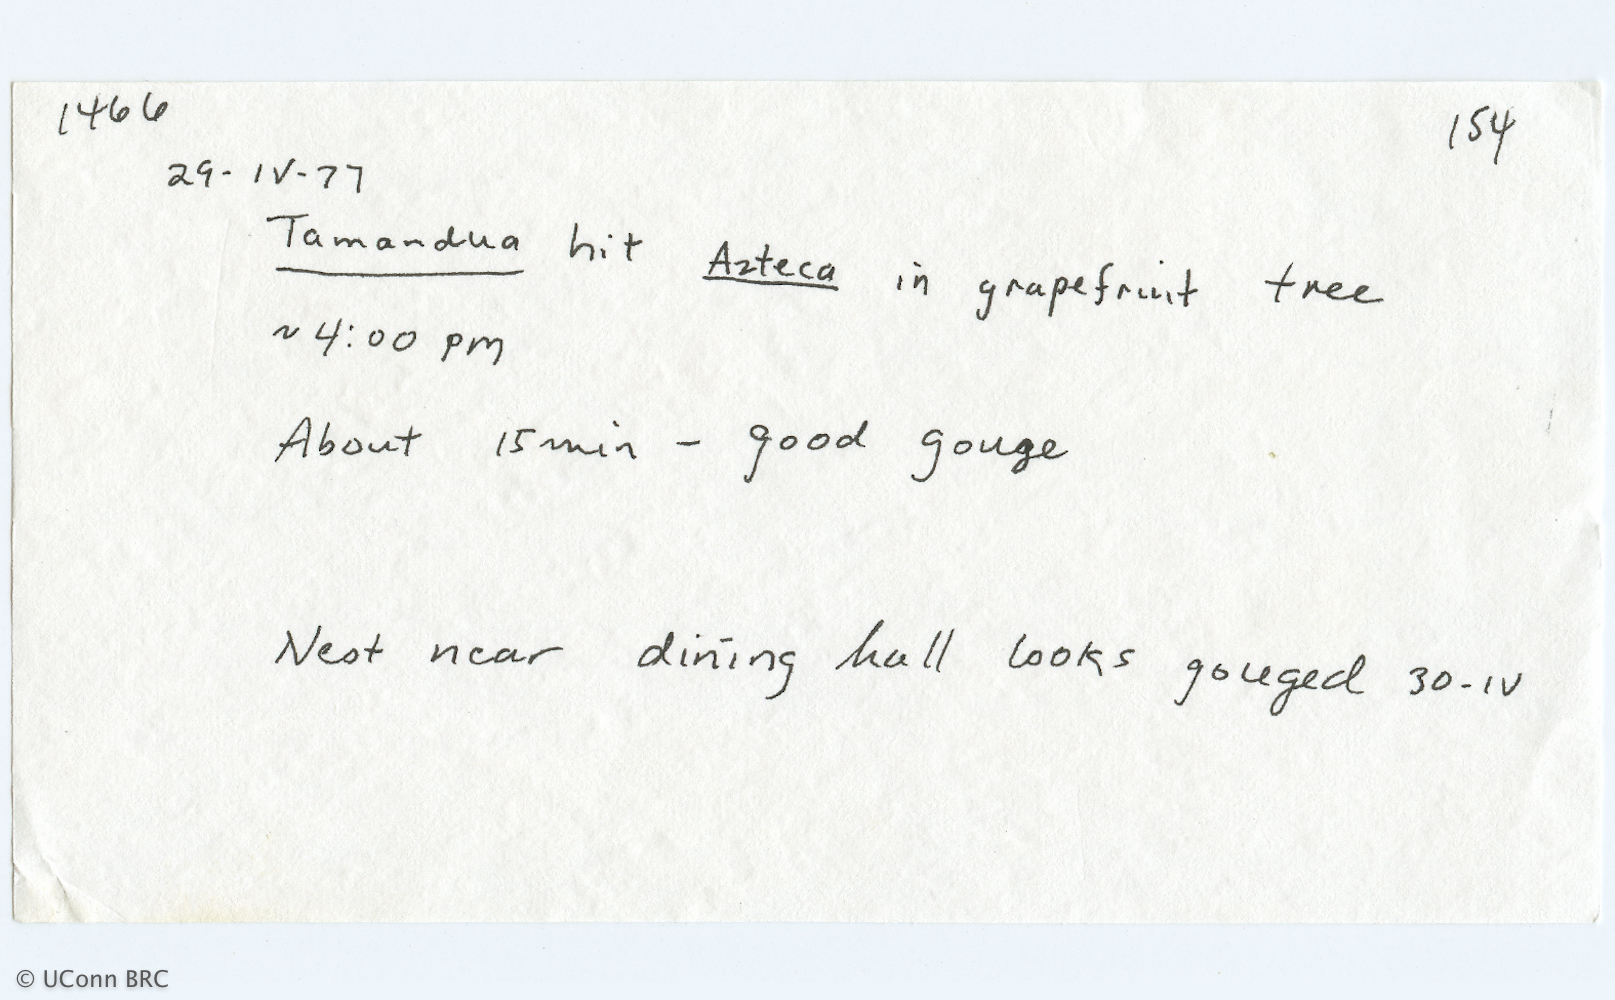 1466
154
29-IV-77
Tamandua hit Azteca in grapefruit tree
~4:00 pm
About 15 min - good gouge
Nest near dining hall looks gouged 30-IV
© UConn BRC